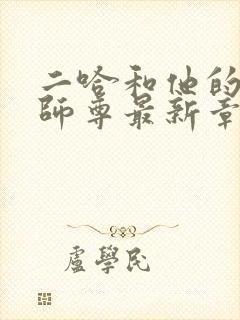 二哈和他的
师尊最新章
盧學民